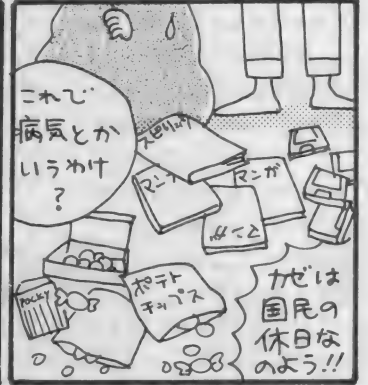 これで
病気とか
いうわけ
?
スピリッツ
マンガ
マンガ
マンガ
POCKY
ポテト
チップス
カゼは
国民の
休日な
のよう!!